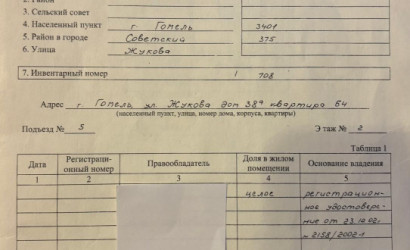 3. Сельский совет
4. Населенный пункт г Гомель 3401
5. Район в городе Советский 375
6. Улица Жукова
7. Инвентарный номер / 708
Адрес г. Гомель ул. Жукова дом 38ª квартира 64
(населенный пункт, улица, номер дома, корпуса, квартиры)
Подъезд № 5 Этаж № 2
Таблица 1
Дата Регистраци-онный номер Правообладатель Доля в жилом помещении Основание владения
1 2 3 4 5
целое регистрацион-
ное удостовере-
ние от 23.12.02г
№ 2158/2002-1